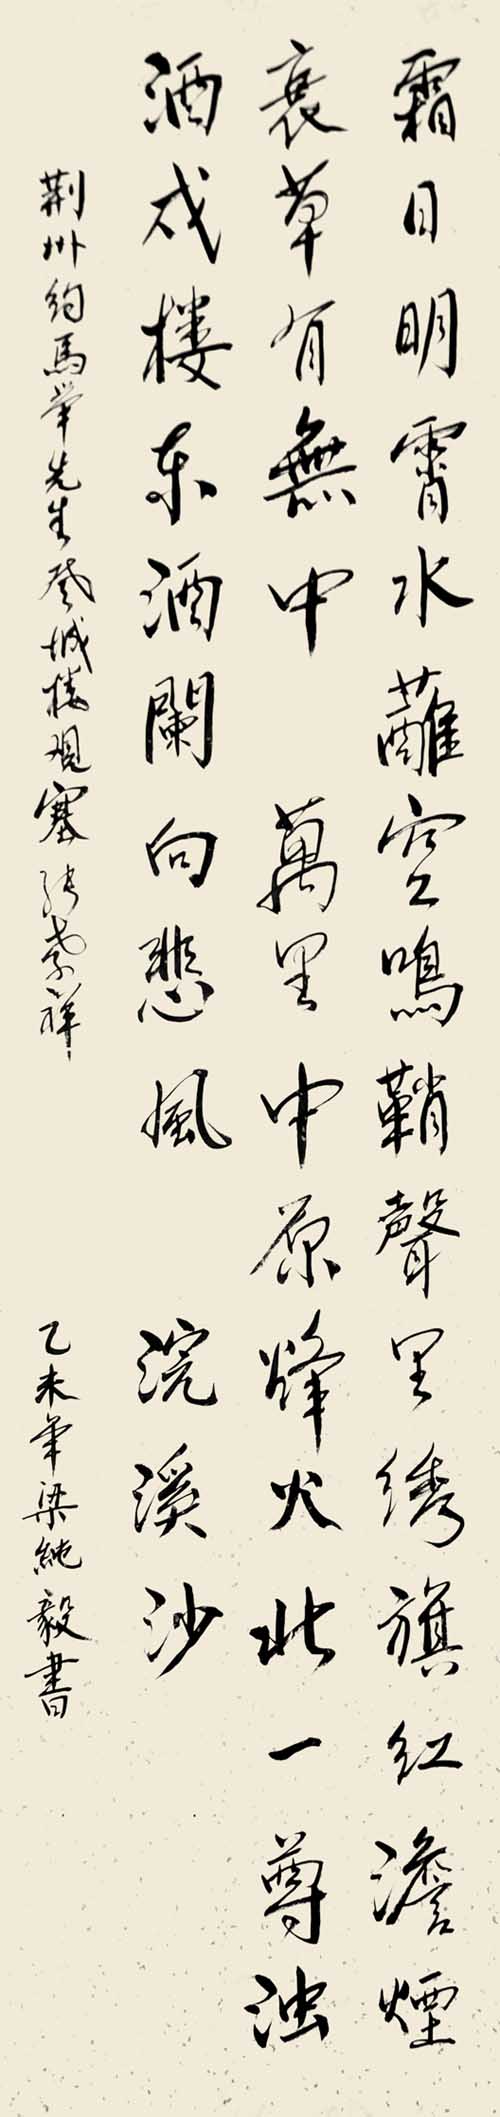 霜日明霄水蘸空鳴鞘聲里绣旗红澹煙
衰草有無中 萬里中原烽火北一尊浊
酒戍楼东酒闌向悲風 浣溪沙
荆州约馬举先生登城楼观塞 张孝祥 乙未年梁純毅書